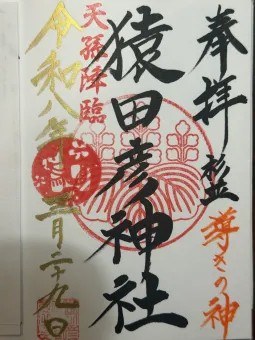 奉拝
導きの神
猿田彦神社
天孫降臨
令和八年三月二十九日